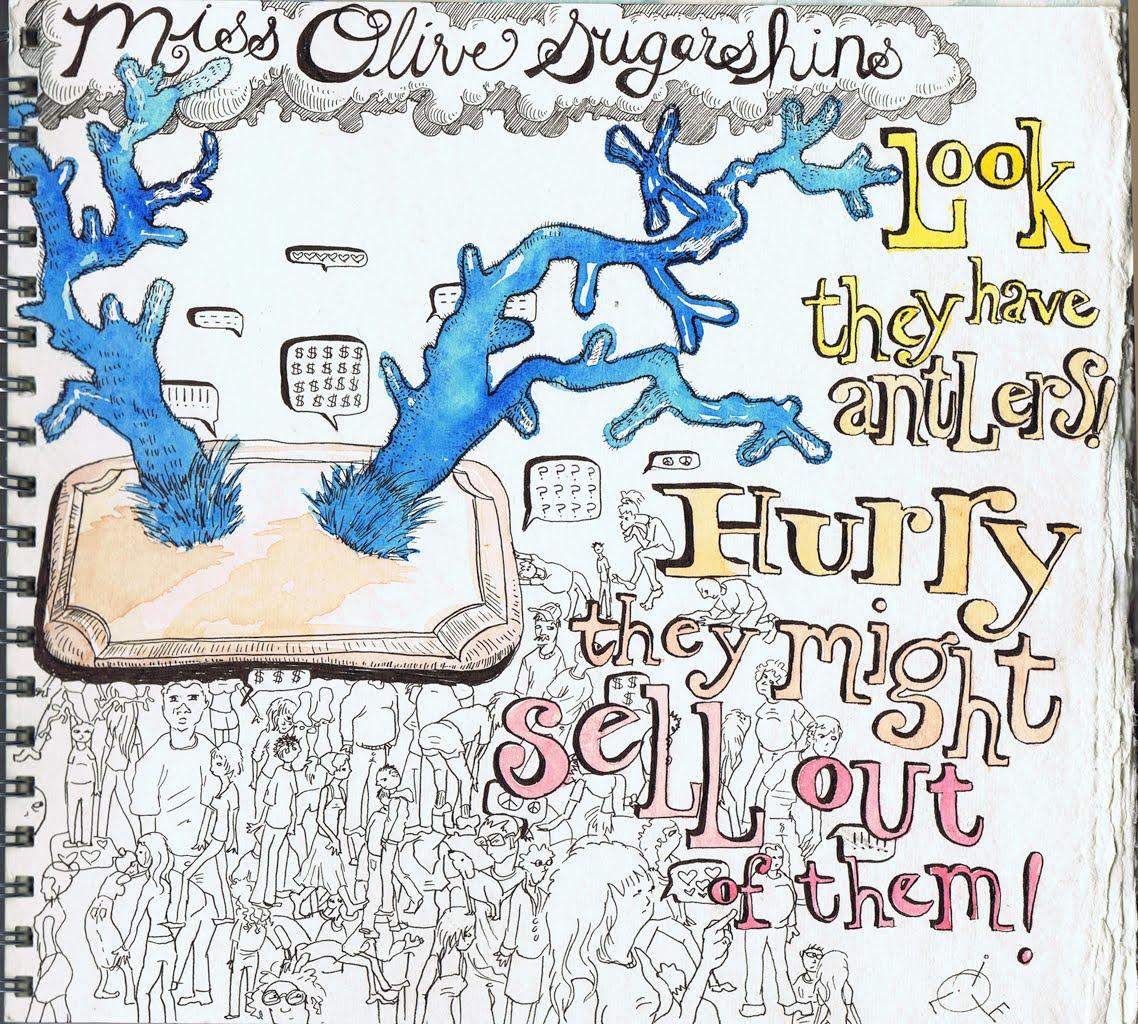 Miss Olive Sugarshins
Look
they have
antlers!
$ $ $ $ $
$ $ $ $ $
$ $ $ $ $
$ $ $ $ $
? ? ? ?
? ? ? ?
? ? ? ?
? ? ? ?
Hurry
they might
$ $ $
$ $
$
sell out
of them!